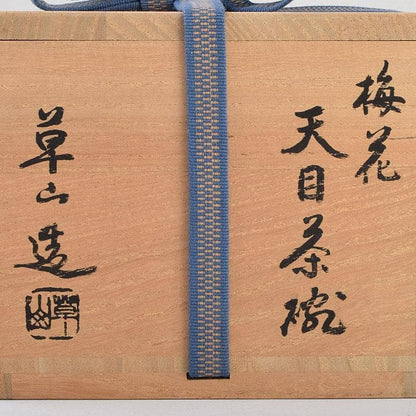 梅花
天目茶碗
草山造
草山